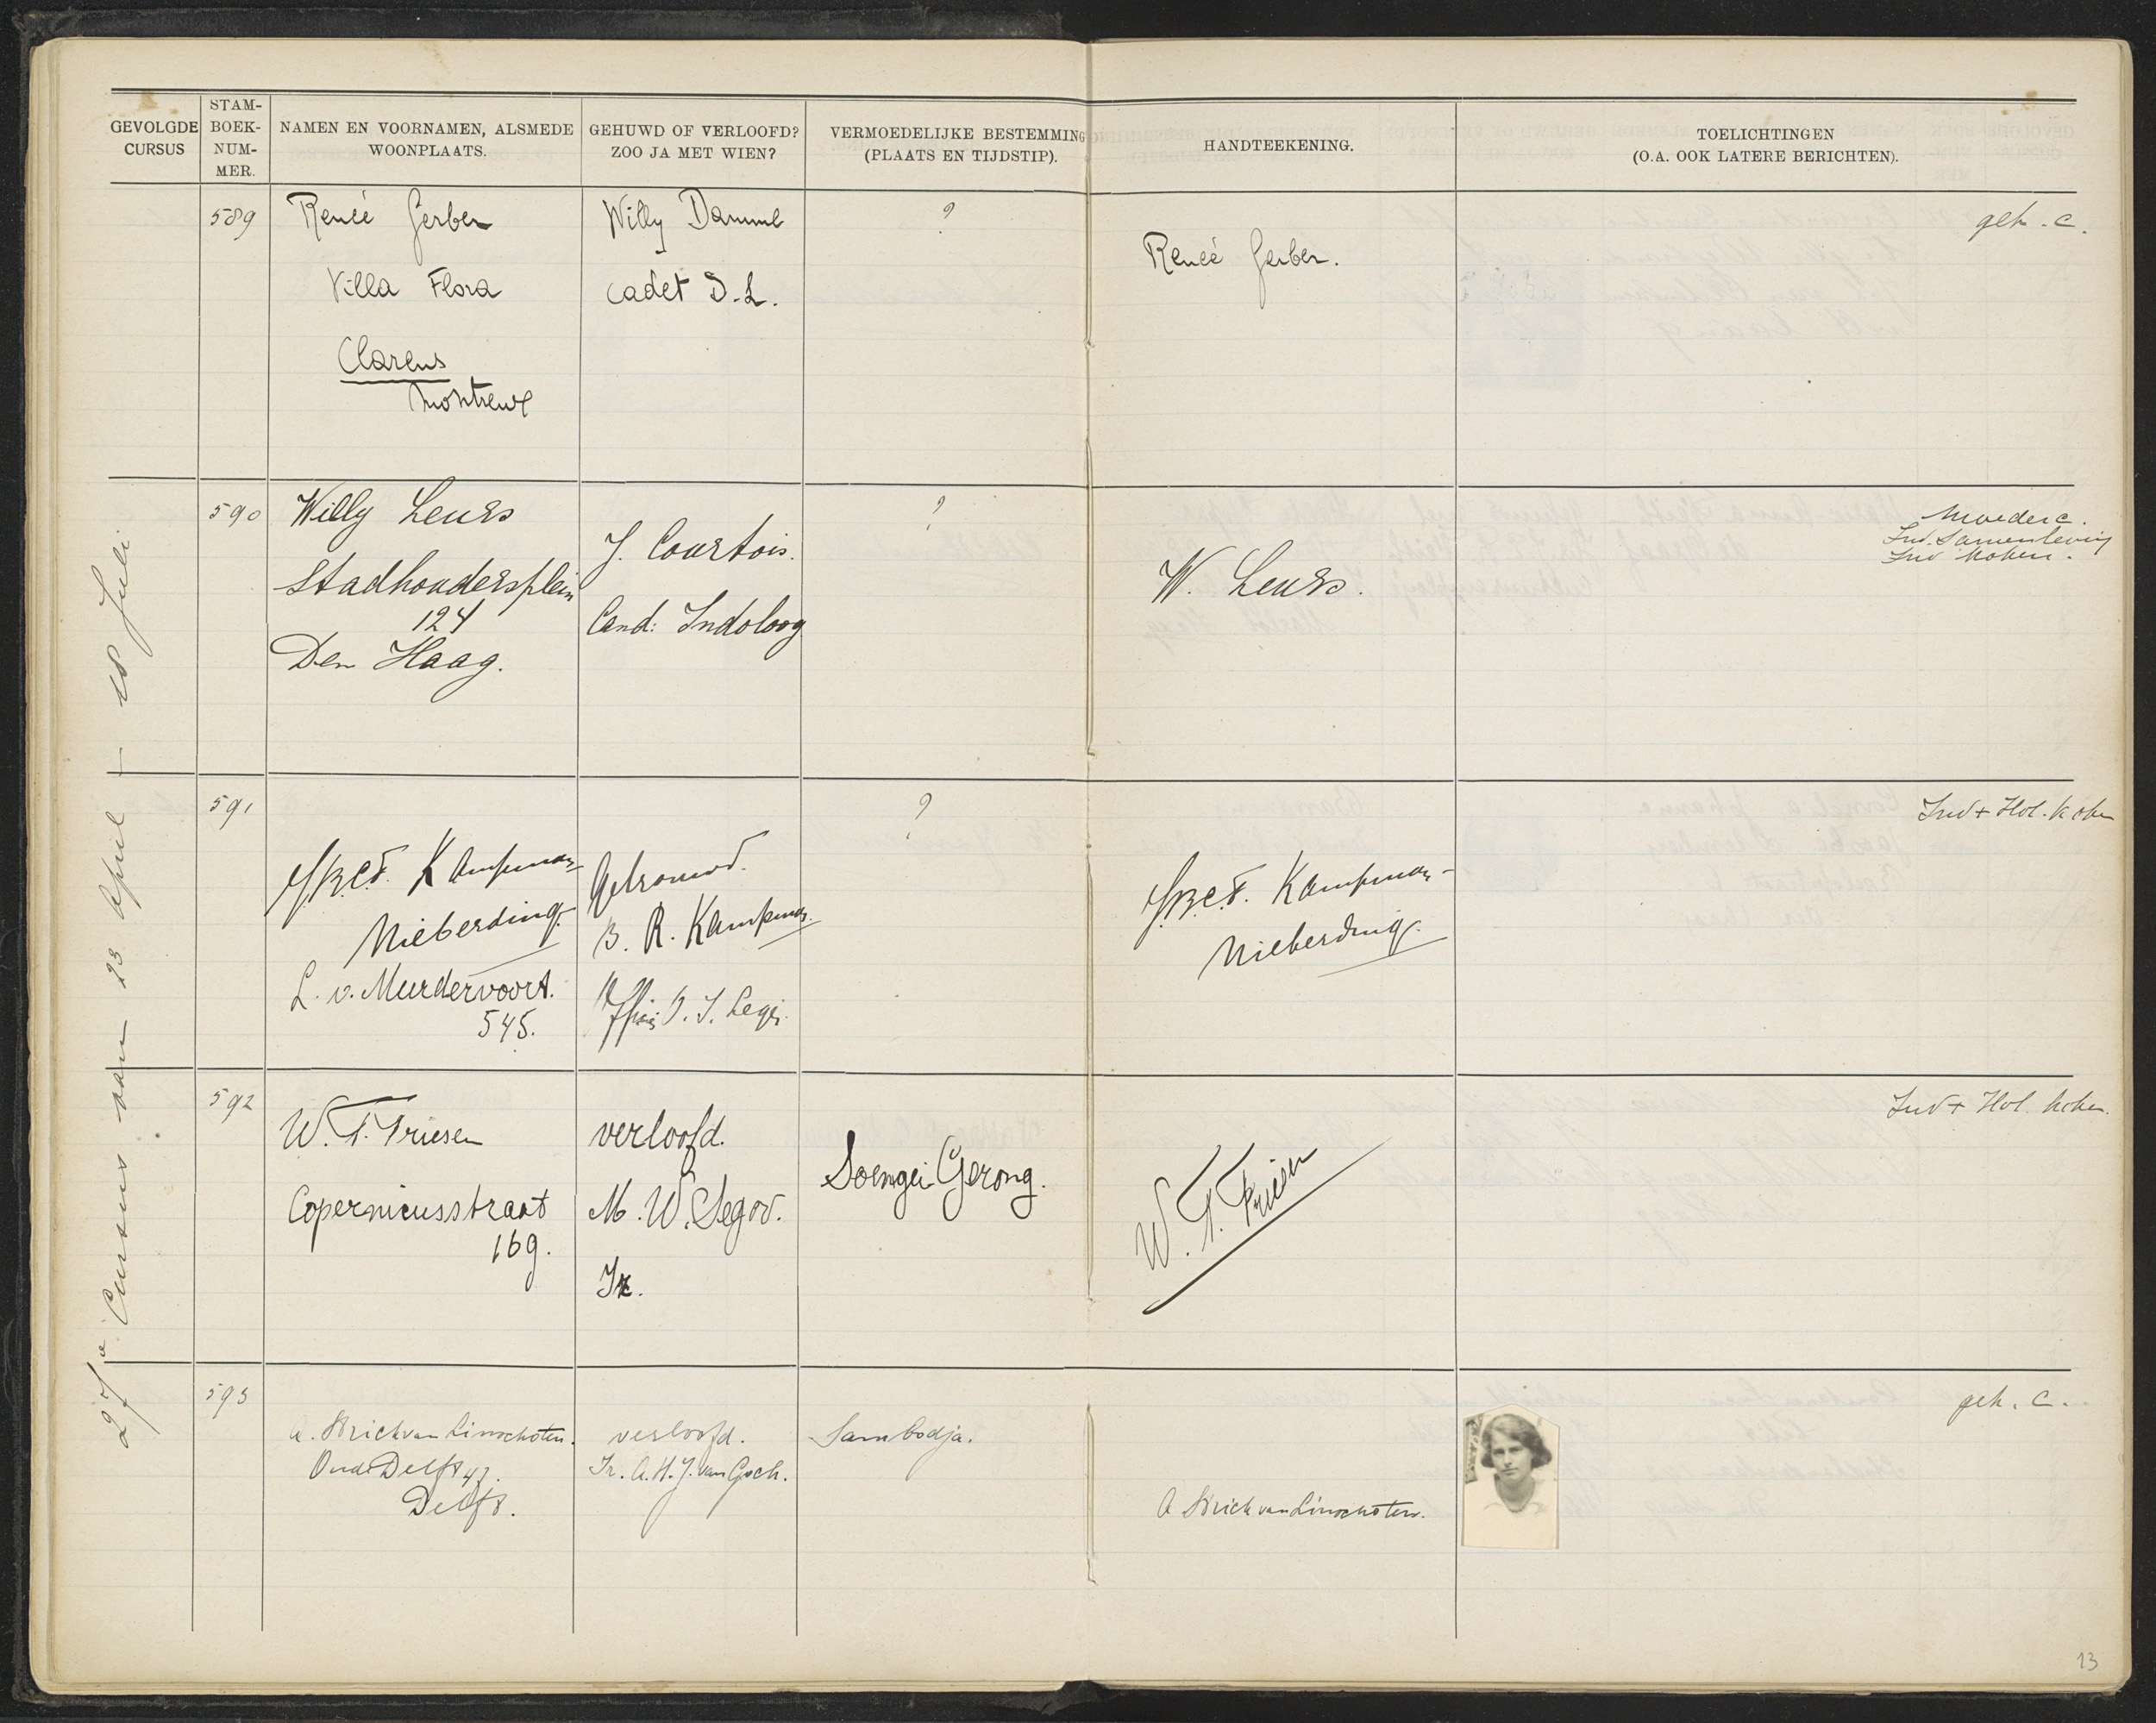 GEVOLGDE CURSUS
STAM-BOEK-NUM-MER.
NAMEN EN VOORNAMEN, ALSMEDE WOONPLAATS.
GEHUWD OF VERLOOFD? ZOO JA MET WIEN?
VERMOEDELIJKE BESTEMMING (PLAATS EN TIJDSTIP).
HANDTEEKENING.
TOELICHTINGEN (O.A. OOK LATERE BERICHTEN).
27e Cursus van 23 April - 18 Juli
589
Reneé Gerber
Villa Flora
Clarens
Montreux
Willy Damme
Cadet D.L.
?
Reneé Gerber.
geh. c.
590
Willy Leurs
Stadhoudersplein
124
Den Haag.
J. Courtois.
Cand: Indoloog
?
W. Leurs.
Moederc.
Ind. Samenleving
Ind Koken.
591
Kampman-
Nieberding.
L. v. Meerdervoort.
545.
Getrouwd.
B. R. Kampman.
O. I. Leger.
?
Kampman-
Nieberding.
Ind + Hol. Koken
592
W. F. Friesen
Copernicusstraat
169.
verloofd.
M. W. Segov.
Ir.
Soengei Gerong.
W. F. Friesen
Ind + Hol. Koken.
593
A. Strick van Linschoten.
Oude Delft 47.
Delft.
verloofd.
Ir. A. H. J. van Goch.
Sambodja.
A Strick van Linschoten.
geh. C.
13